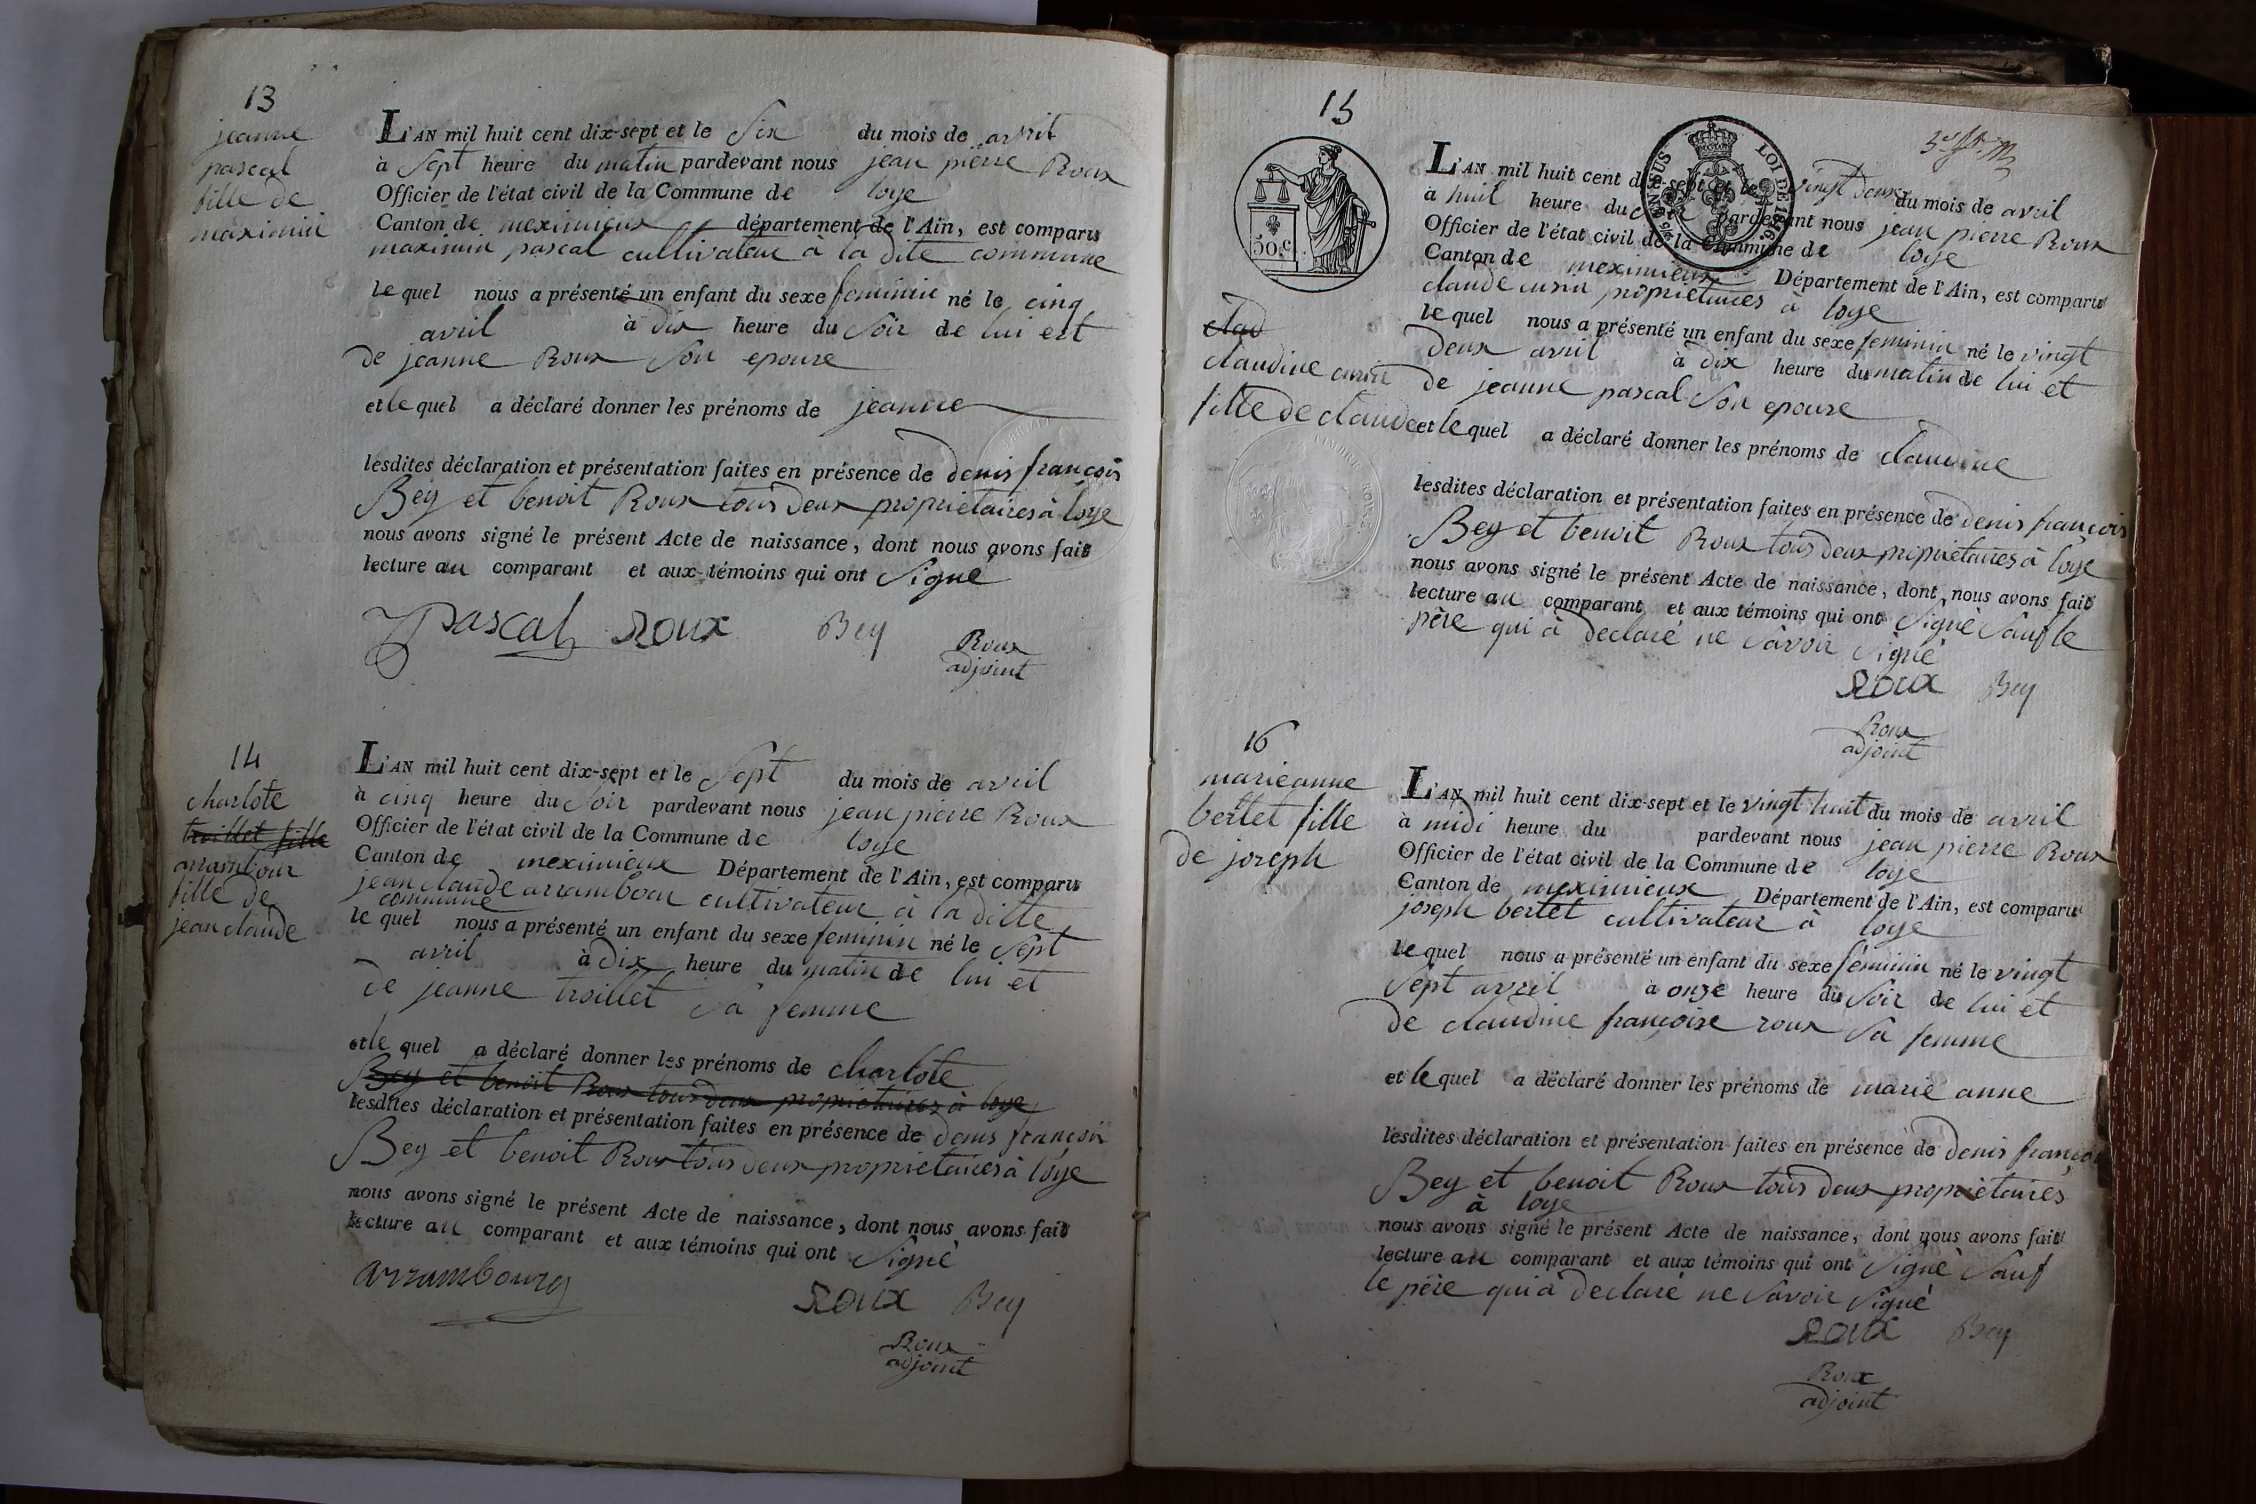 13
jeanne
pascal
fille de
maximin
L'AN mil huit cent dix-sept et le Six du mois de avril
à Sept heure du matin pardevant nous jean pierre Roux
Officier de l'état civil de la Commune de loye
Canton de meximieux département de l'Ain, est comparu
maximin pascal cultivateur à la dite commune
lequel nous a présenté un enfant du sexe feminin né le cinq
avril à dix heure du Soir de lui est
de jeanne Roux Son epouse
et lequel a déclaré donner les prénoms de jeanne
lesdites déclaration et présentation faites en présence de denis françois
Bey et benoit Roux tous deux propriétaires à loye
nous avons signé le présent Acte de naissance, dont nous avons fait
lecture au comparant et aux témoins qui ont Signé
pascal Roux Bey
Roux
adjoint
14
charlote
troillet fille
arrambour
fille de
jean claude
L'AN mil huit cent dix-sept et le Sept du mois de avril
à cinq heure du Soir pardevant nous jean pierre Roux
Officier de l'état civil de la Commune de loye
Canton de meximieux Département de l'Ain, est comparu
jean claude arrambour cultivateur à la ditte
commune
lequel nous a présenté un enfant du sexe feminin né le Sept
avril à dix heure du matin de lui et
de jeanne troillet sa femme
et le quel a déclaré donner les prénoms de charlote
Bey et benoit Roux tous deux propriétaires à loye
lesdites déclaration et présentation faites en présence de denis françois
Bey et benoit Roux tous deux propriétaires à loye
nous avons signé le présent Acte de naissance, dont nous avons fait
lecture au comparant et aux témoins qui ont Signé
arrambourg
Roux Bey
Roux
adjoint
15
50 c.
5 CENSUS
LOI DE 1816.
clad
claudine curin
fille de claude
L'AN mil huit cent dix-sept et le vingt deux du mois de avril
à huit heure du pardevant nous jean pierre Roux
Officier de l'état civil de la Commune de loye
Canton de meximieux Département de l'Ain, est comparu
claude curin propriétaires à loye
lequel nous a présenté un enfant du sexe feminin né le vingt
deux avril à dix heure du matin de lui et
de jeanne pascal Son epouse
et le quel a déclaré donner les prénoms de claudine
lesdites déclaration et présentation faites en présence de denis françois
Bey et benoit Roux tous deux propriétaires à loye
nous avons signé le présent Acte de naissance, dont nous avons fait
lecture au comparant et aux témoins qui ont Signé Sauf le
père qui à declaré ne Savoir Signé
Roux Bey
Roux
adjoint
16
marieanne
bertet fille
de joseph
L'AN mil huit cent dix-sept et le vingt huit du mois de avril
à midi heure du pardevant nous jean pierre Roux
Officier de l'état civil de la Commune de loye
Canton de meximieux Département de l'Ain, est comparu
joseph bertet cultivateur à loye
lequel nous a présenté un enfant du sexe féminin né le vingt
Sept avril à onze heure du Soir de lui et
de claudine françoise roux sa femme
et le quel a déclaré donner les prénoms de marie anne
lesdites déclaration et présentation faites en présence de denis françois
Bey et benoit Roux tous deux propriétaires
à loye
nous avons signé le présent Acte de naissance, dont nous avons fait
lecture au comparant et aux témoins qui ont Signé Sauf
le père qui à declaré ne Savoir Signé
Roux Bey
Roux
adjoint